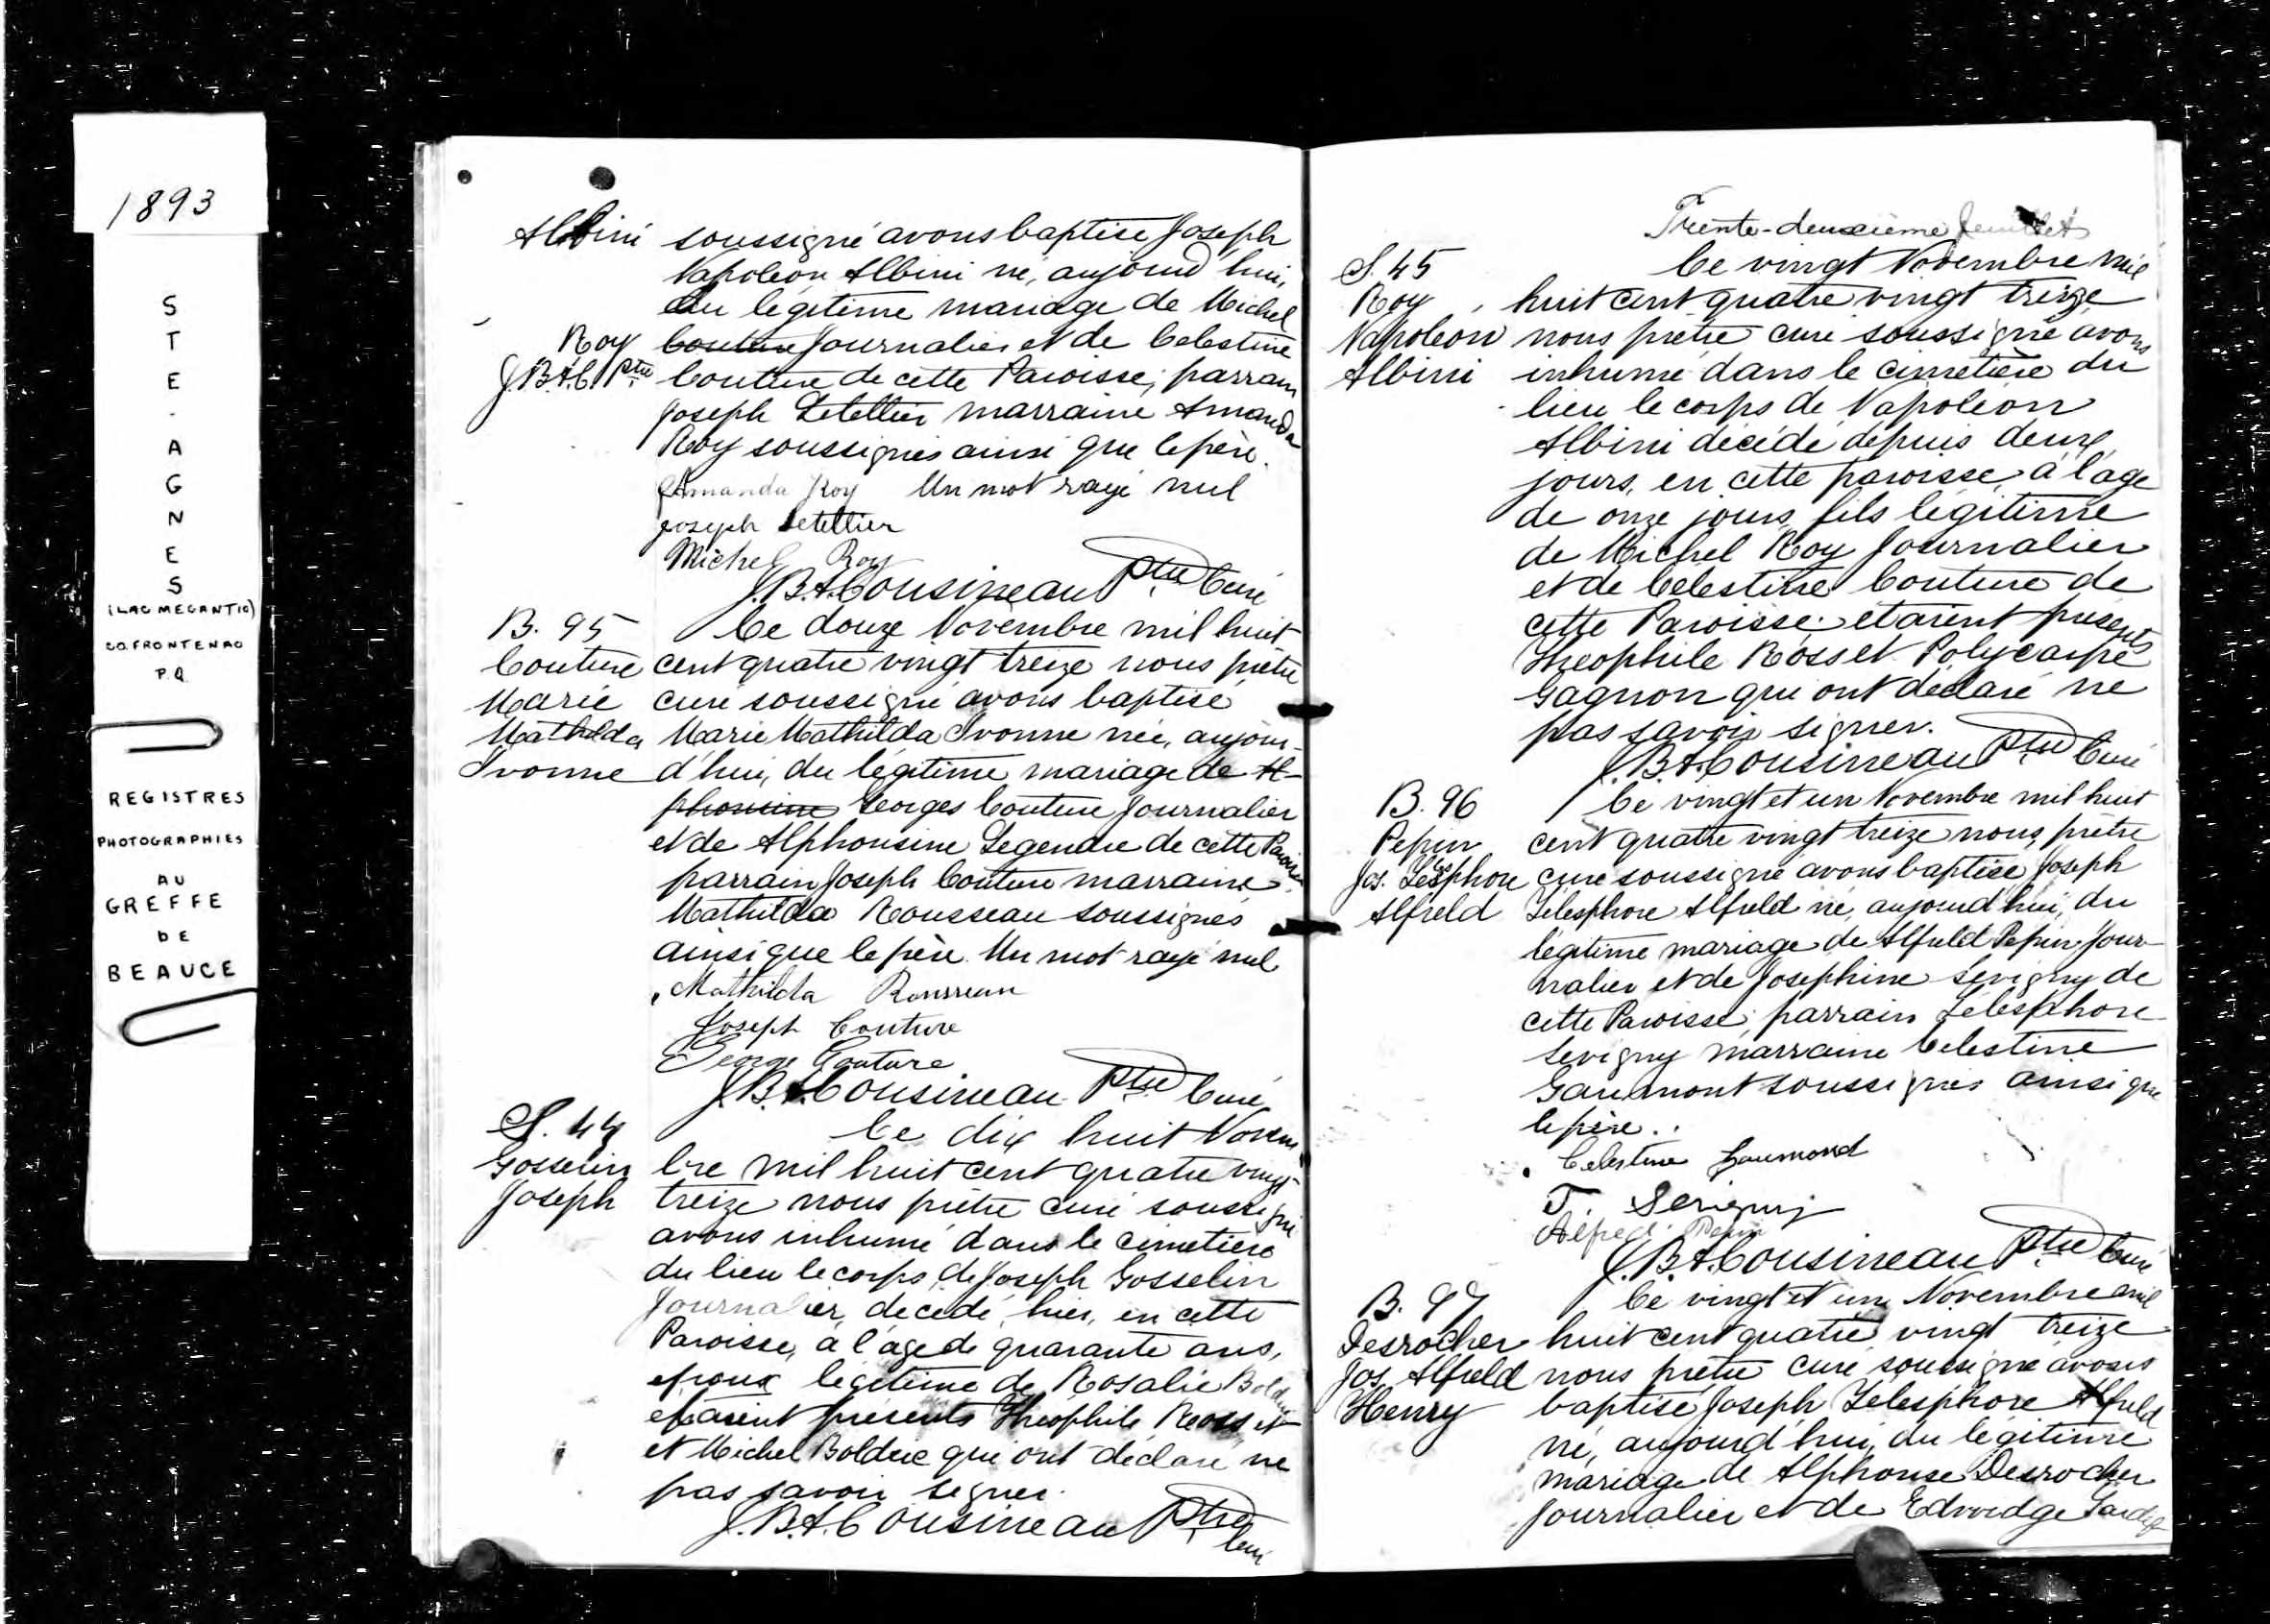 1893
STE-AGNES
(LAC MEGANTIC)
CO. FRONTENAC
P.Q.
REGISTRES
PHOTOGRAPHIES
AU
GREFFE
DE
BEAUCE
Albini soussigné avons baptisé Joseph
Napoléon Albini né, aujourd'hui,
du légitime mariage de Michel
Roy Couture Journalier et de Celestine
J.B.A.C. Ptre Couture de cette Paroisse; parrain
Joseph Letellier marraine Amanda
Roy soussignés ainsi que le père.
Amanda Roy Un mot rayé nul
Joseph Letellier
Michel Roy
J.B.A. Cousineau Ptre Curé
B. 95 Ce douze Novembre mil huit
Couture cent quatre vingt treize nous prêtre
Marie curé soussigné avons baptisé
Mathilda Marie Mathilda Ivonne née, aujour-
Ivonne d'hui, du légitime mariage de Al-
phonsine Georges Couture Journalier
et de Alphonsine Legendre de cette Paroisse
parrain Joseph Couture marraine
Mathilda Rousseau soussignés
ainsi que le père. Un mot rayé nul
Mathilda Rousseau
Joseph Couture
George Couture
J.B.A. Cousineau Ptre Curé
S. 44 Ce dix huit Novem
Gosselin bre mil huit cent quatre vingt
Joseph treize nous prêtre curé soussigné
avons inhumé dans le cimetière
du lieu le corps de Joseph Gosselin
Journalier, décédé, hier, en cette
Paroisse, à l'age de quarante ans,
epoux légitime de Rosalie Bolduc
etaient présents Theophile Ross et
et Michel Bolduc qui ont déclaré ne
pas savoir signer.
J.B.A. Cousineau Ptre
Curé
Trente-deuxième feuillet
S. 45 Ce vingt Novembre mil
Roy huit cent quatre vingt treize
Napoleon nous prêtre curé soussigné avons
Albini inhumé dans le cimetière du
lieu le corps de Napoléon
Albini décédé depuis deux
jours, en cette paroisse, à l'age
de onze jours, fils légitime
de Michel Roy Journalier
et de Celestine Couture de
cette Paroisse: étaient présents
Theophile Ross et Polycarpe
Gagnon qui ont déclaré ne
pas savoir signer.
J.B.A. Cousineau Ptre Curé
B. 96 Ce vingt et un Novembre mil huit
Pepin cent quatre vingt treize nous, prêtre
Jos. Telesphore curé soussigné avons baptisé Joseph
Alfreld Telesphore Alfreld né, aujourd'hui, du
légitime mariage de Alfreld Pepin Jour-
nalier et de Josephine Sevigny de
cette Paroisse; parrain Télesphore
Sevigny marraine Celestine
Gaumont soussignés ainsi que
le père.
Celestine Gaumond
T. Sevigny
Alfred Pepin
J.B.A. Cousineau Ptre Curé
B. 97 Ce vingt et un Novembre mil
Desrocher huit cent quatre vingt treize
Jos. Alfreld nous prêtre curé soussigné avons
Henry baptisé Joseph Telesphore Alfreld
né, aujourd'hui, du légitime
mariage de Alphonse Desrocher
Journalier et de Edwidge